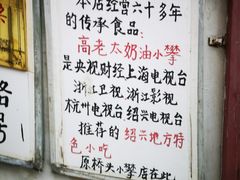 本店经营六十多年
的传承食品：
高老太奶油小攀
是央视财经上海电视台
浙江卫视、浙江影视
杭州电视台、绍兴电视台
推荐的绍兴地方特
色小吃
原桥头小攀店在此
路